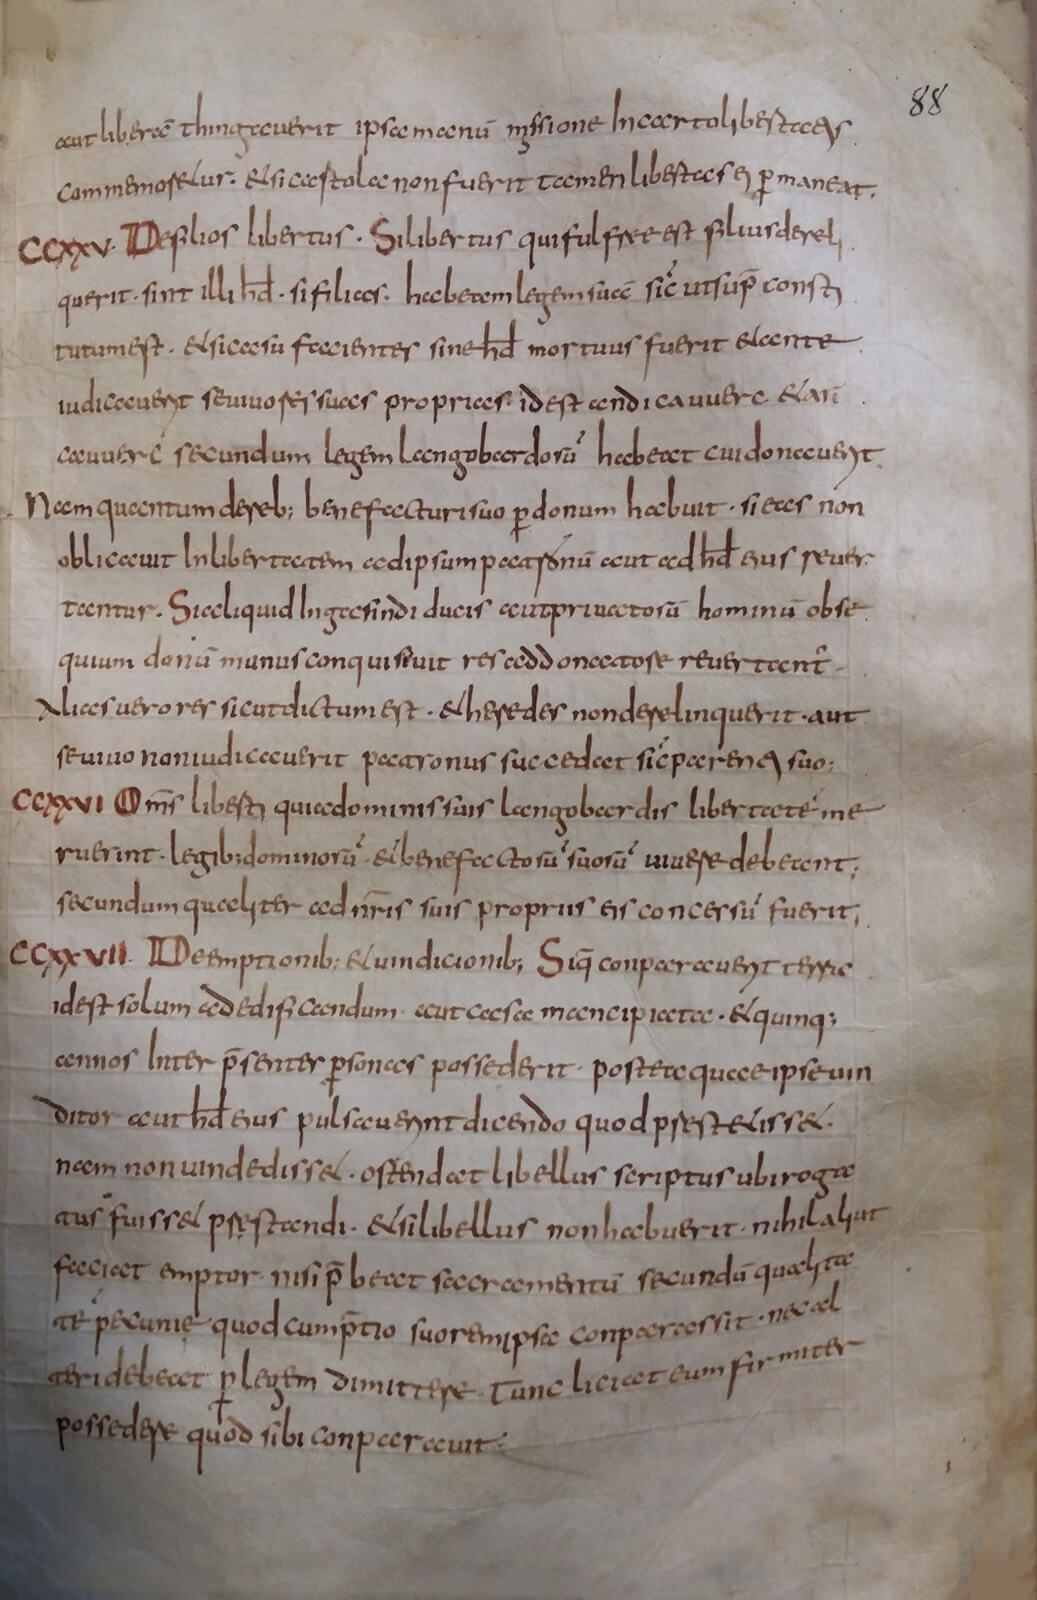 88
aut liberā thingauerit ipsa manū missione In carto libertatis
commemoretur. et si cartola non fuerit tamen libertas ei p maneat.
CCXXV. De filios libertus. Si libertus qui fulfree est filius dereli
querit. sint illi hd. si filias. habeant legem suā sic ut sup consti
tutum est. et si casu faciente sine hd mortuus fuerit et ante
iudicauerit se uiuo res suas proprias. id est andicauuere et ari
cauuere secundum legem langobardorū habeat cui donauerit.
Nam quantum de reb; benefacturi suo p donum habuit. si eas non
obligauit In libertatem ad ipsum patronū aut ad hd eius reuer
tantur. Si aliquid In gasindi ducis aut priuatorū hominū obse
quium donū munus conquisiuit res ad donatore reuertant
Alias uero res sicut dictum est. et heredes non derelinquerit. aut
se uiuo non iudicauerit patronus succedat sic parenti suo;
CCXXVI Oms liberti qui a dominis suis langobardis libertatē me
ruerint. legib; dominorū et benefactorū suorū uiuere debeant;
secundum qualiter ad nris suis propriis eis concessū fuerit;
CCXXVII. De emptionib; et uindicionib; Si q conparauerit terra
id est solum ad edificandum. aut casa mancipiata. et quinq;
annos Inter psentes psonas possederit. postea quae ipse uin
ditor aut hd eius pulsauerint dicendo quod prestetisset.
nam non uindedisset. ostendat libellus scriptus ubi roga
tus fuisset prestandi. et si libellus non habuerit. nihil aliut
faciat emptor. nisi p beat sacramentū secundū qualita
tē pecunię quod cum ptio suo rem ipsa conparassit. nec al
teri debeat p legem dimittere. Tunc liciat eum firmiter
possedere quod sibi conparauit.